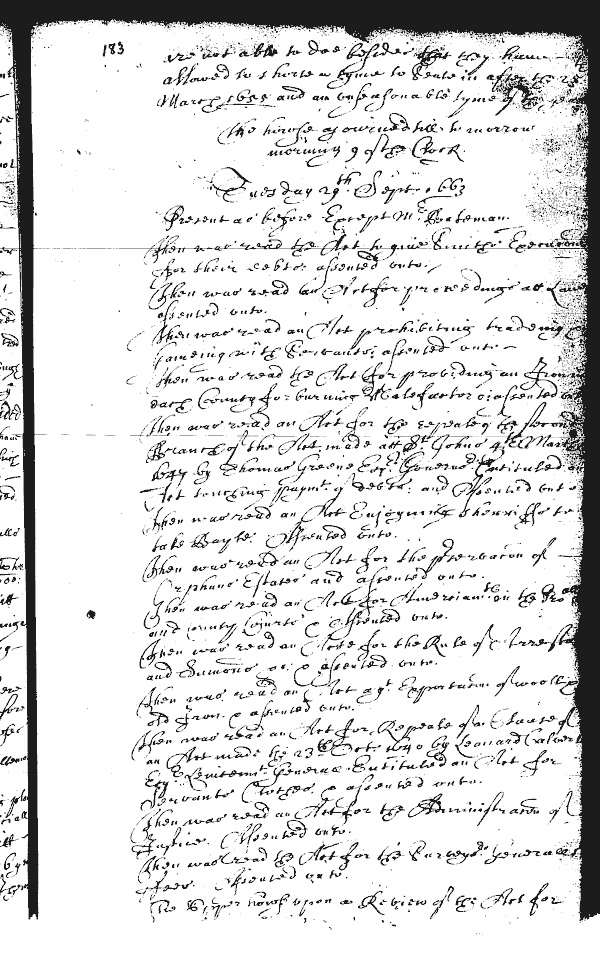 183
are not able to doe besides that they haue
allowed to shorte a tyme to Seate in after the 25
March 1655 and an vnseasonable tyme of the yeare
The howse adiourned till to morrow
morning 9 of the Clock.
Tuesday 29th Septr. 1663
Present as before Except Mr. Bateman.
Then was read the Act to giue Smiths Execucon
for their debts assented vnto.
Then was read an Act for proceedings att Law
assented vnto.
Then was read an Act prohibiting tradeing
Gameing with Servants; assented vnto
Then was read the Act for providing an Iron in
each County for burning Malefactors; assented
Then was read an Act for the repeale of the second
Branch of the Act made att St. Johns 4th March
1647 by Thomas Greene Esqr. Governor Entituled an
Act touching paymt. of debts; and Assented vnto
Then was read an Act Enjoyning Sherriffs to
take Bayle. Assented vnto.
Then was read an Act for the preservacon of
Orphans Estates and assented vnto.
Then was read an Act for Amerciamts in the Pro
and County Courts & Assented vnto.
Then was read an Acte for the Rule of Arrests
and &c. & assented vnto.
Then was read an Act agt. Exportacon of wooll &
old Iron & assented vnto.
Then was read an Act for Repeale of a Clause of
an Act made the 23th Octr. 1640 by Leonard Calvert
Esqr. Lieutennt. Generall Entituled an Act for
Servants Clothes. & assented vnto.
Then was read an Act for the Administracon of
Justice. Assented vnto.
Then was read the Act for the Surveyor Generalls
ffees. Assented vnto.
The Vpper howse vpon a Review of the Act for